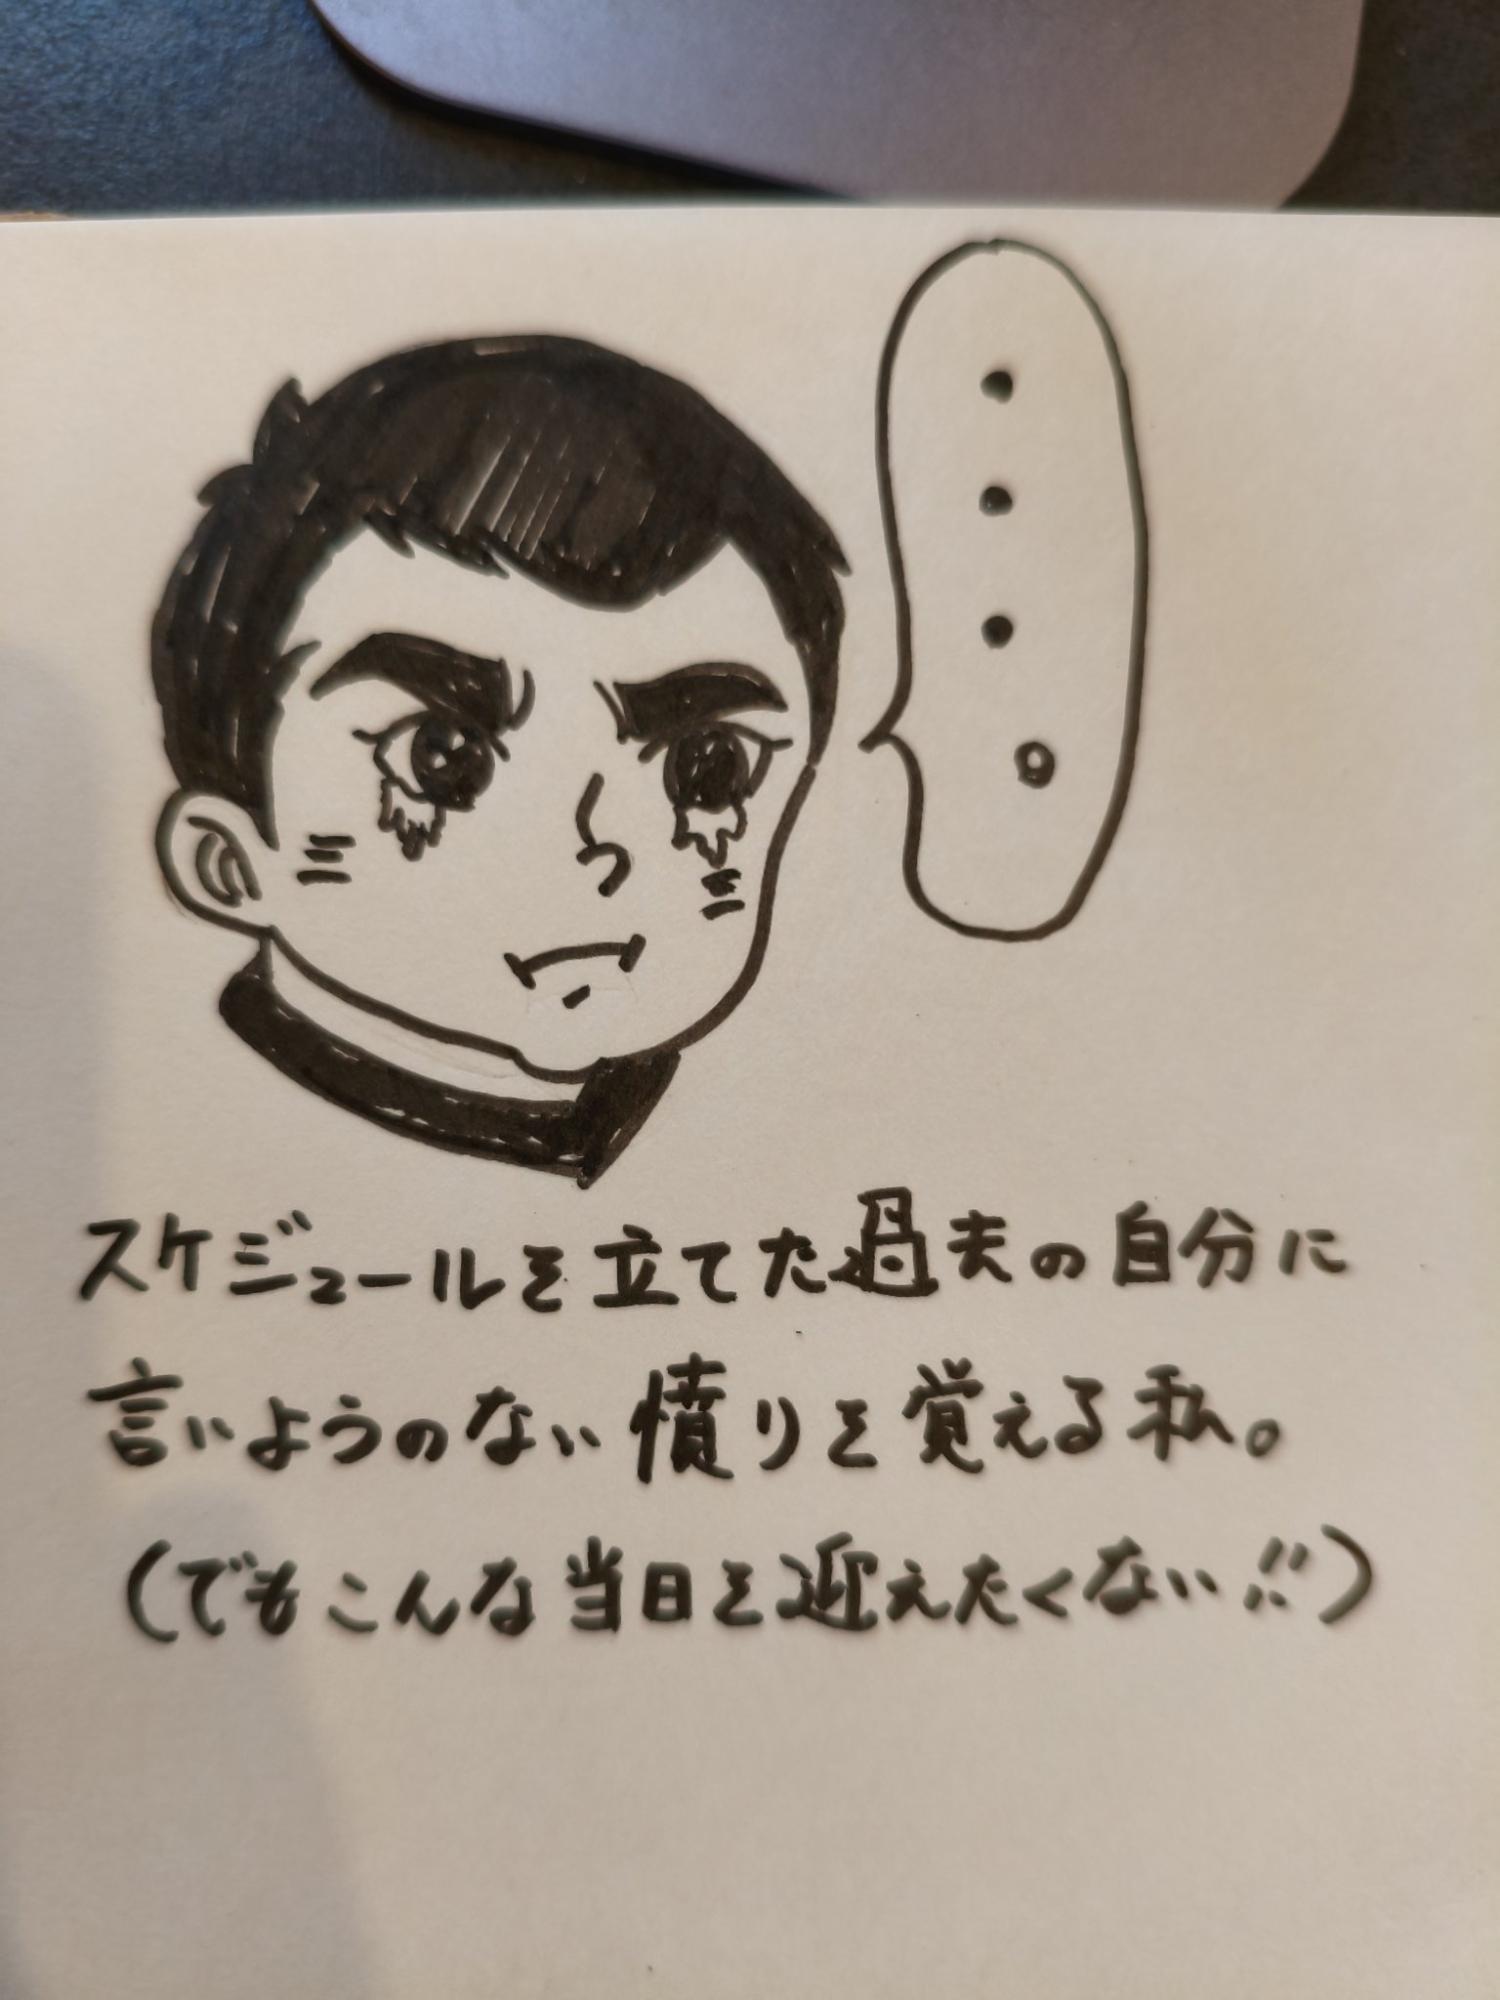 ・・・。
スケジュールを立てた過去の自分に
言いようのない憤りを覚える私。
(でもこんな当日を迎えたくない!!)